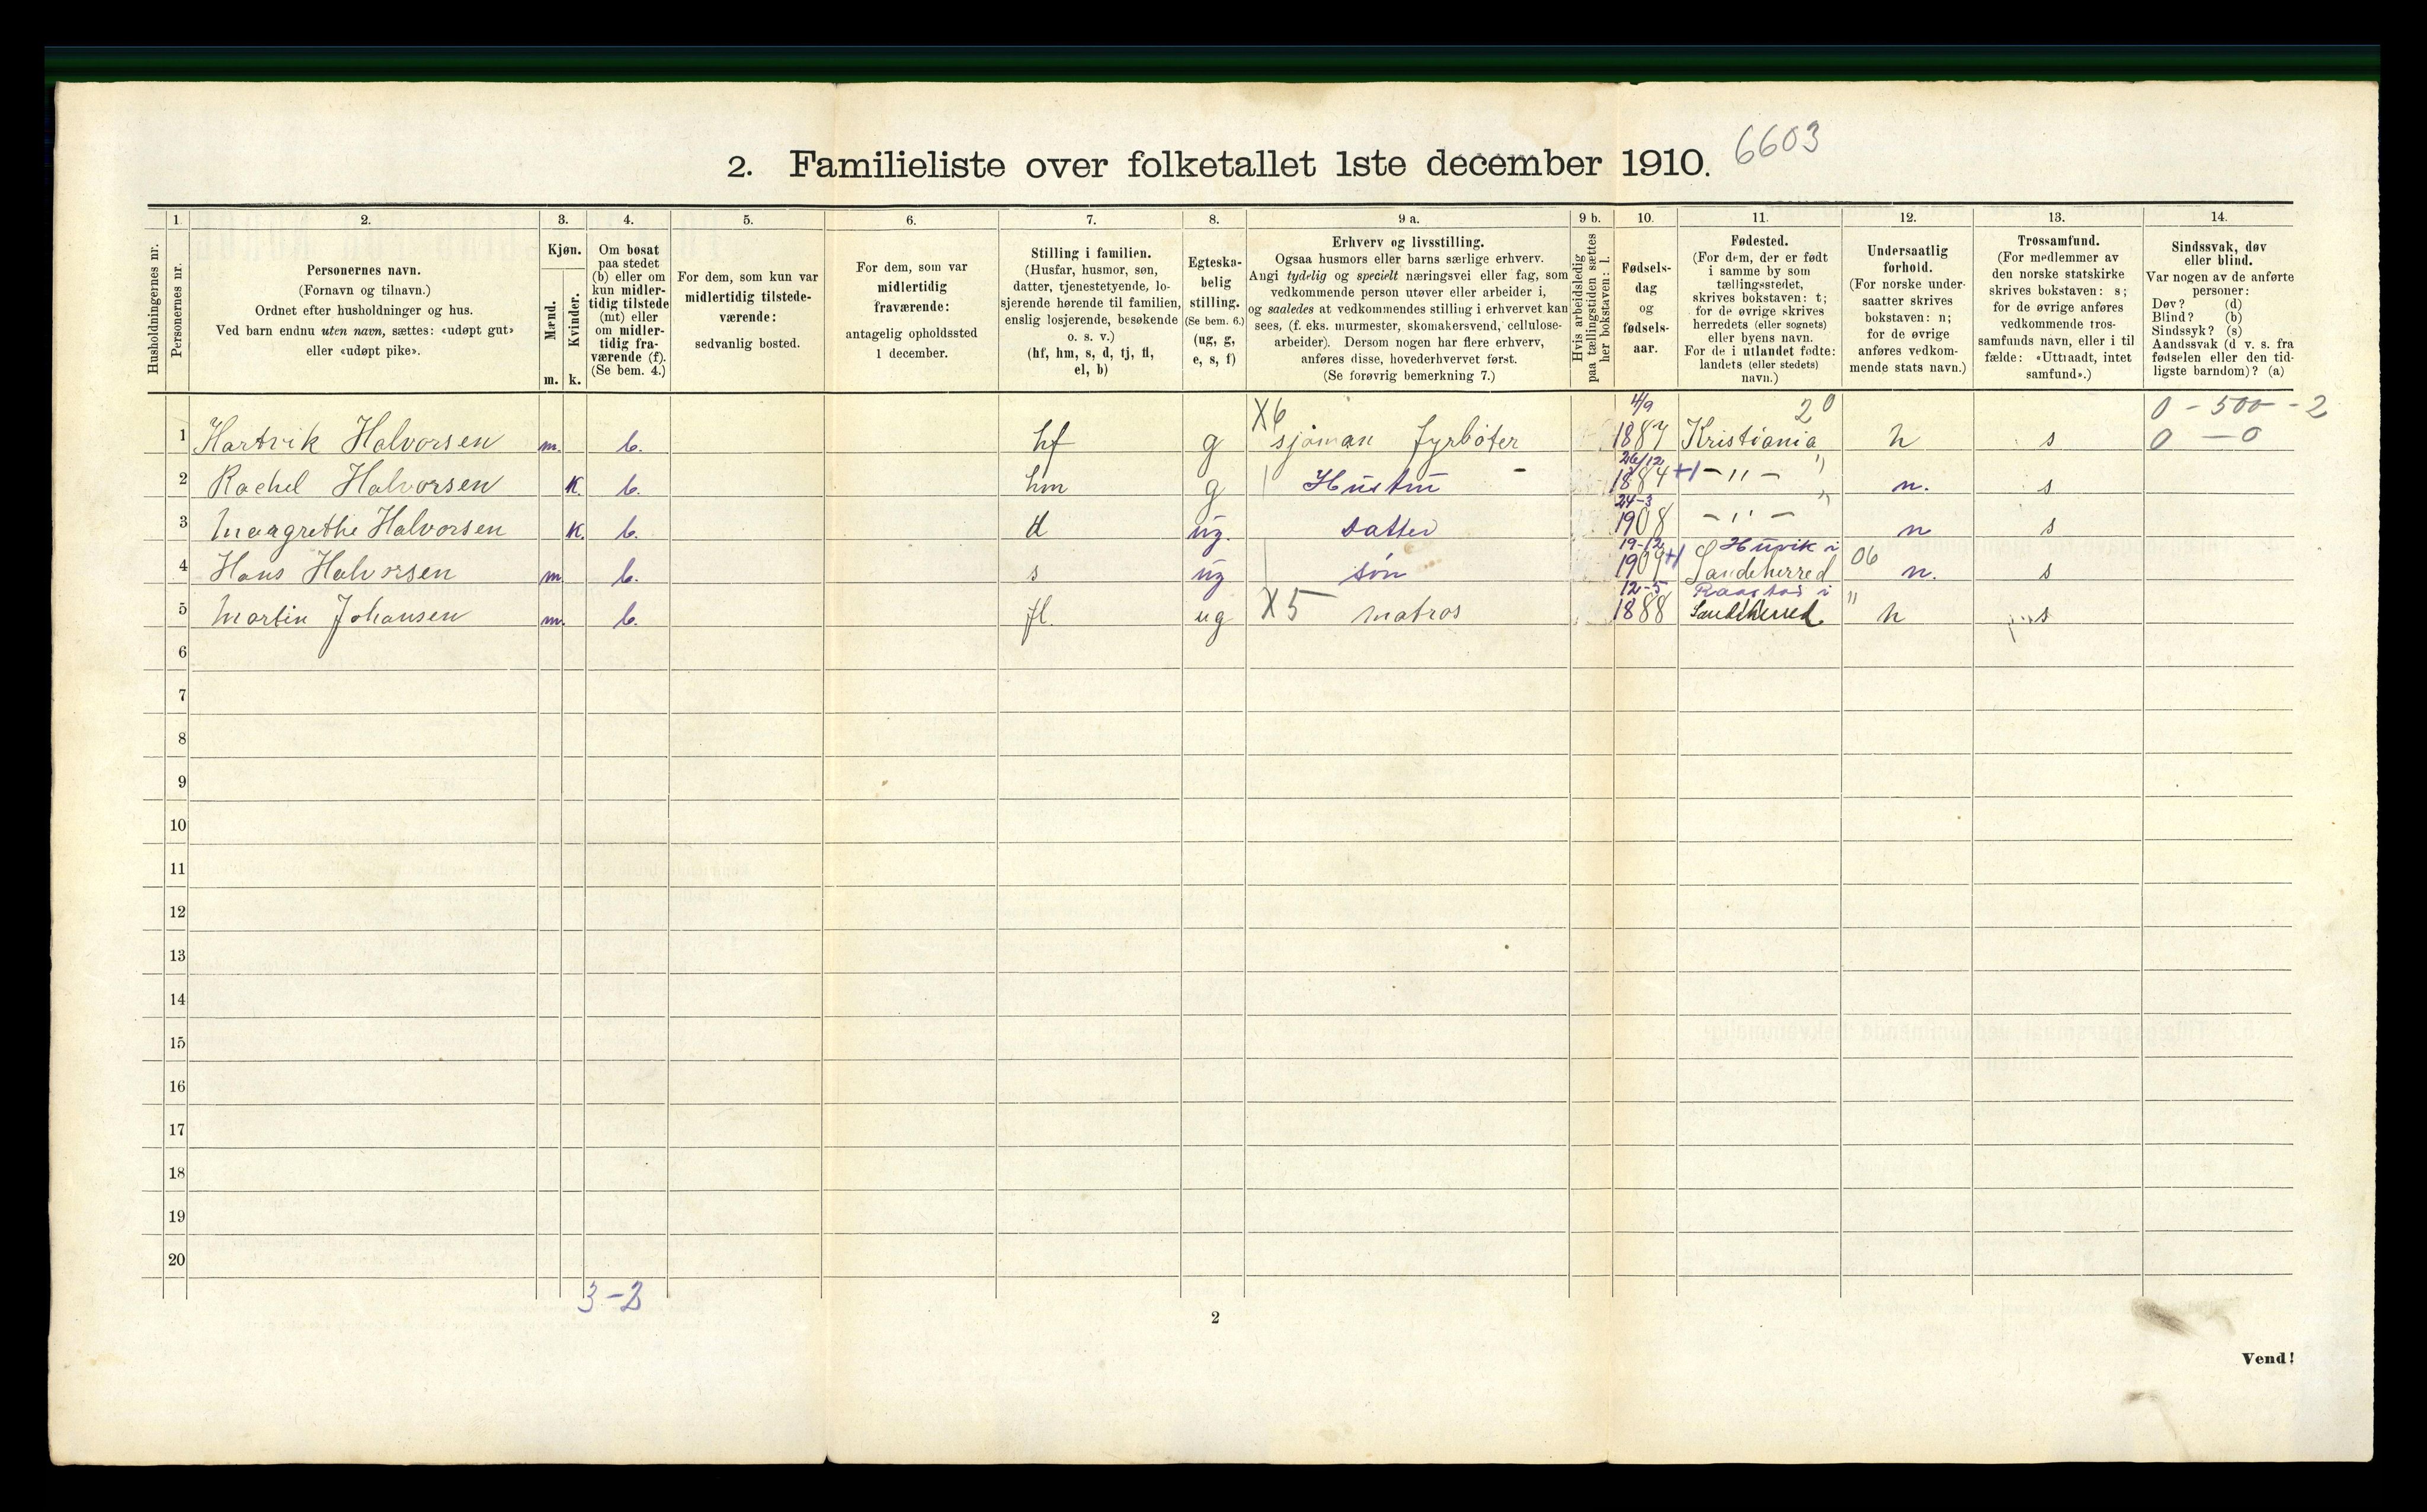 2. Familieliste over folketallet 1ste december 1910. 6603
Husholdningernes nr.
1.
Personernes nr.
2.
Personernes navn.
(Fornavn og tilnavn.)
Ordnet efter husholdninger og hus.
Ved barn endnu uten navn, sættes: «udøpt gut»
eller «udøpt pike».
3.
Kjøn.
Mænd.
Kvinder.
m. k.
4.
Om bosat
paa stedet
(b) eller om
kun midler-
tidig tilstede
(mt) eller
om midler-
tidig fra-
værende (f).
(Se bem. 4.)
5.
For dem, som kun var
midlertidig tilstede-
værende:
sedvanlig bosted.
6.
For dem, som var
midlertidig
fraværende:
antagelig opholdssted
1 december.
7.
Stilling i familien.
(Husfar, husmor, søn,
datter, tjenestetyende, lo-
sjerende hørende til familien,
enslig losjerende, besøkende
o. s. v.)
(hf, hm, s, d, tj, fl,
el, b)
8.
Egteska-
belig
stilling.
(Se bem. 6.)
(ug, g,
e, s, f)
9 a.
Erhverv og livsstilling.
Ogsaa husmors eller barns særlige erhverv.
Angi tydelig og specielt næringsvei eller fag, som
vedkommende person utøver eller arbeider i,
og saaledes at vedkommendes stilling i erhvervet kan
sees, (f. eks. murmester, skomakersvend, cellulose-
arbeider). Dersom nogen har flere erhverv,
anføres disse, hovederhvervet først.
(Se forøvrig bemerkning 7.)
9 b.
Hvis arbeidsledig
paa tællingstiden sættes
her bokstaven: l.
10.
Fødsels-
dag
og
fødsels-
aar.
11.
Fødested.
(For dem, der er født
i samme by som
tællingsstedet,
skrives bokstaven: t;
for de øvrige skrives
herredets (eller sognets)
eller byens navn.
For de i utlandet fødte:
landets (eller stedets)
navn.)
12.
Undersaatlig
forhold.
(For norske under-
saatter skrives
bokstaven: n;
for de øvrige
anføres vedkom-
mende stats navn.)
13.
Trossamfund.
(For medlemmer av
den norske statskirke
skrives bokstaven: s;
for de øvrige anføres
vedkommende tros-
samfunds navn, eller i til
fælde: «Uttraadt, intet
samfund».)
14.
Sindssvak, døv
eller blind.
Var nogen av de anførte
personer:
Døv? (d)
Blind? (b)
Sindssyk? (s)
Aandssvak (d v. s. fra
fødselen eller den tid-
ligste barndom)? (a)
X6 4/9 20 0 - 500 - 2
1 Hartvik Halvorsen m. b. hf g sjøman fyrbøter 1887 Kristiania n s 0 - 0
26/12
2 Rachel Halvorsen K. b. hm g Hustru - 1884 +1 - " - " n. s
24-3
3 Margrethe Halvorsen K. b. d ug. datter 1908 - " - " n s
19-12 Husvik i
4 Hans Halvorsen m b. s ug søn 1909 +1 Sandeherred 06 n. s
12-5 Raastad i
5 Martin Johansen m. b. fl. ug X5 matros 1888 Sandeherred " n s
6
7
8
9
10
11
12
13
14
15
16
17
18
19
20
3-2
2
Vend!